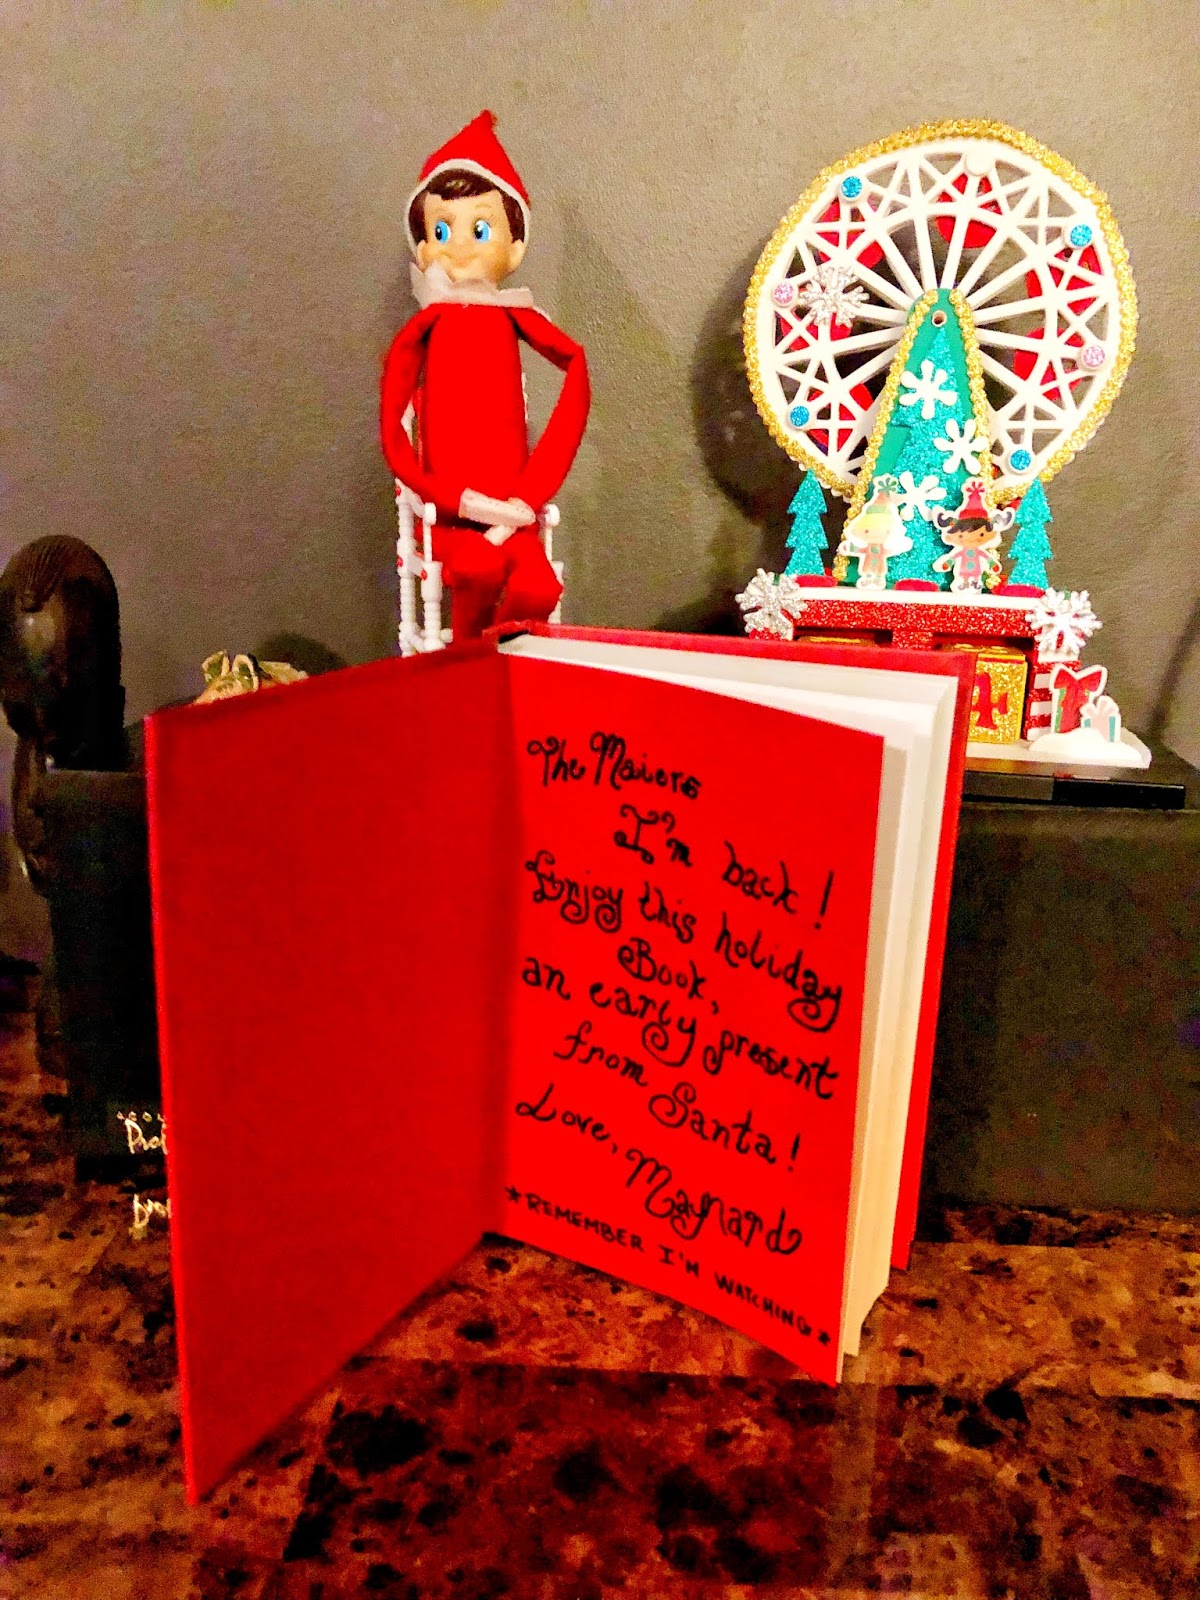 The Maiers
I'm back!
Enjoy this holiday
Book,
an early present
from Santa!
Love, Maynard
*REMEMBER I'M WATCHING*